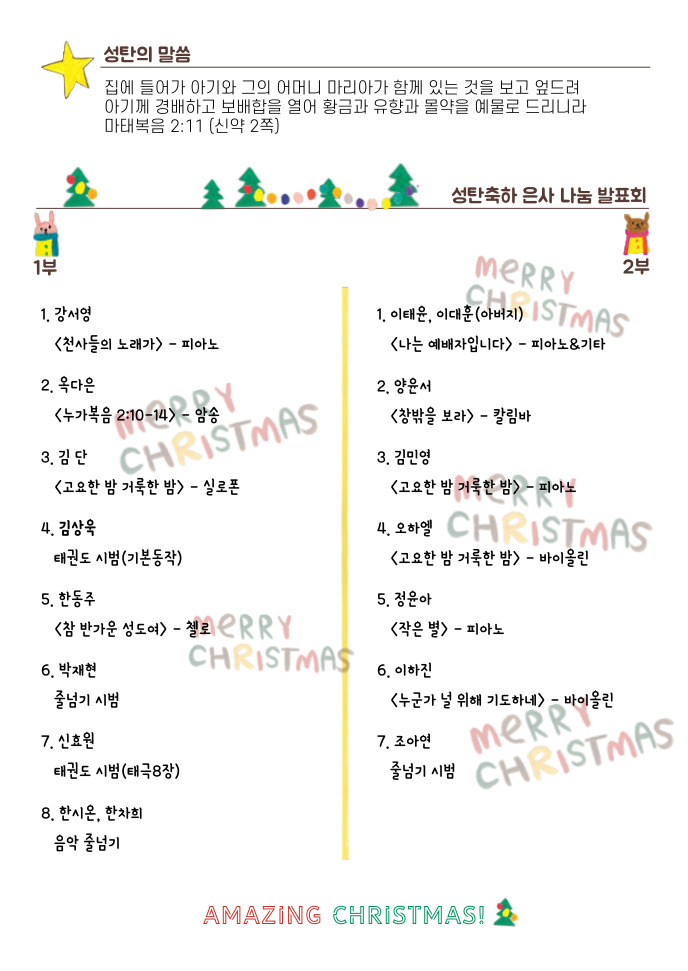 성탄의 말씀
집에 들어가 아기와 그의 어머니 마리아가 함께 있는 것을 보고 엎드려
아기께 경배하고 보배합을 열어 황금과 유향과 몰약을 예물로 드리니라
마태복음 2:11 (신약 2쪽)
성탄축하 은사 나눔 발표회
1부
1. 강서영
<천사들의 노래가> - 피아노
2. 옥다은
<누가복음 2:10-14> - 암송
3. 김 단
<고요한 밤 거룩한 밤> - 실로폰
4. 김상욱
태권도 시범(기본동작)
5. 한동주
<참 반가운 성도여> - 첼로
6. 박재현
줄넘기 시범
7. 신효원
태권도 시범(태극8장)
8. 한시온, 한차희
음악 줄넘기
MERRY
CHRISTMAS
MERRY
CHRISTMAS
2부
1. 이태윤, 이대훈(아버지)
<나는 예배자입니다> - 피아노&기타
2. 양윤서
<창밖을 보라> - 칼림바
3. 김민영
<고요한 밤 거룩한 밤> - 피아노
4. 오하엘
<고요한 밤 거룩한 밤> - 바이올린
5. 정윤아
<작은 별> - 피아노
6. 이하진
<누군가 널 위해 기도하네> - 바이올린
7. 조아연
줄넘기 시범
MERRY
CHRISTMAS
MERRY
CHRISTMAS
MERRY
CHRISTMAS
AMAZING CHRISTMAS!